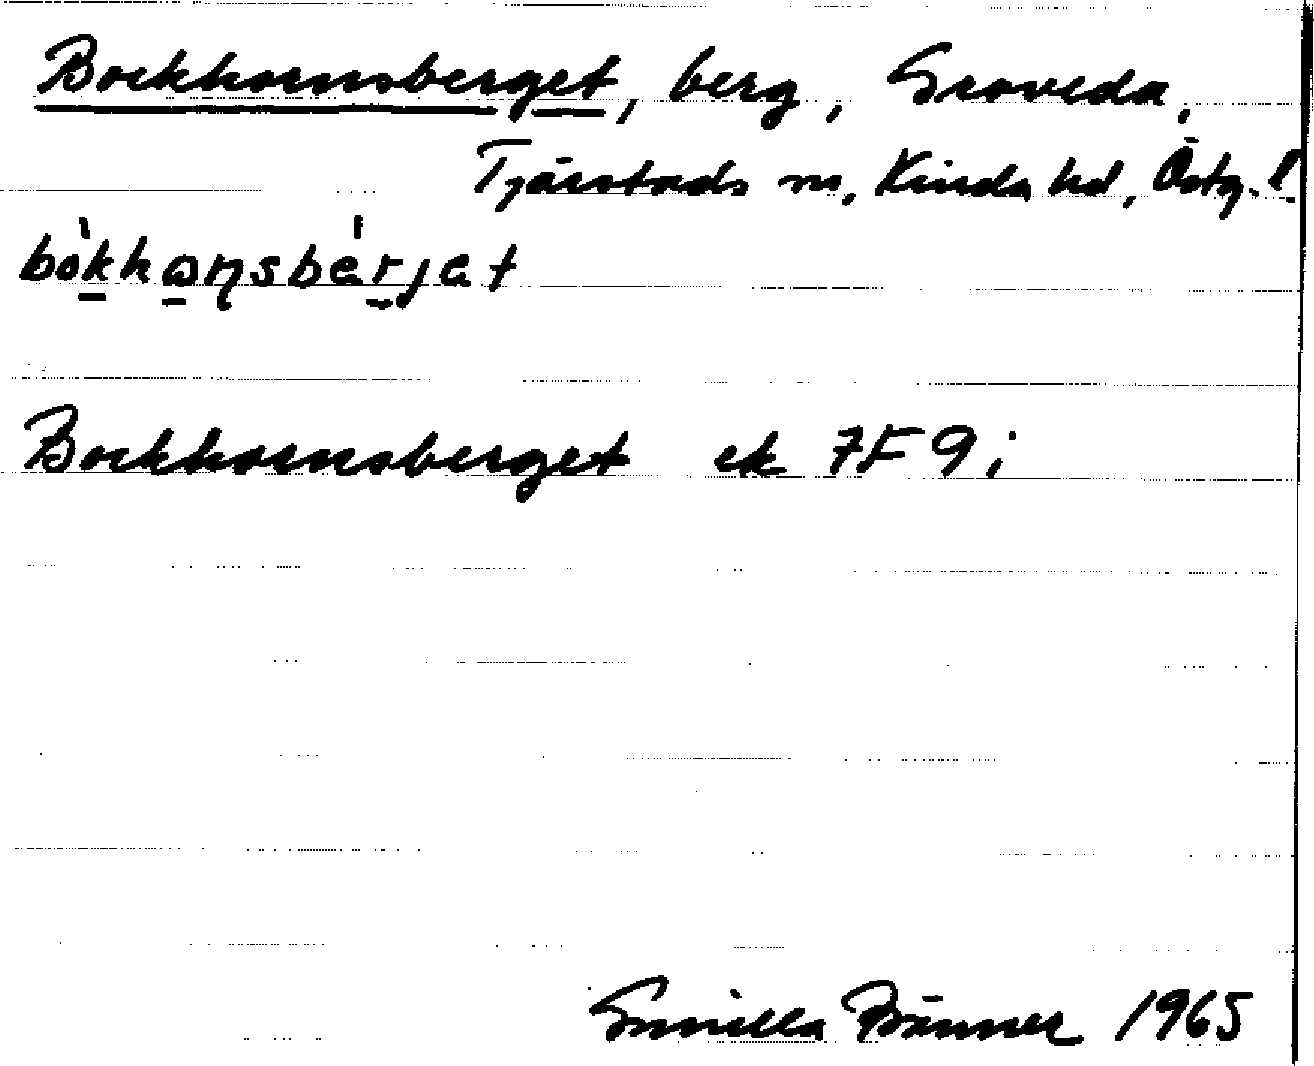 Bockhornsberget, berg, Groveda,
Tjärstads sn, Kinda hd, Östg. l.
bòkhɷɳsbárjat
Bockhornsberget ek 7F 9i
Gunilla Bänner 1965